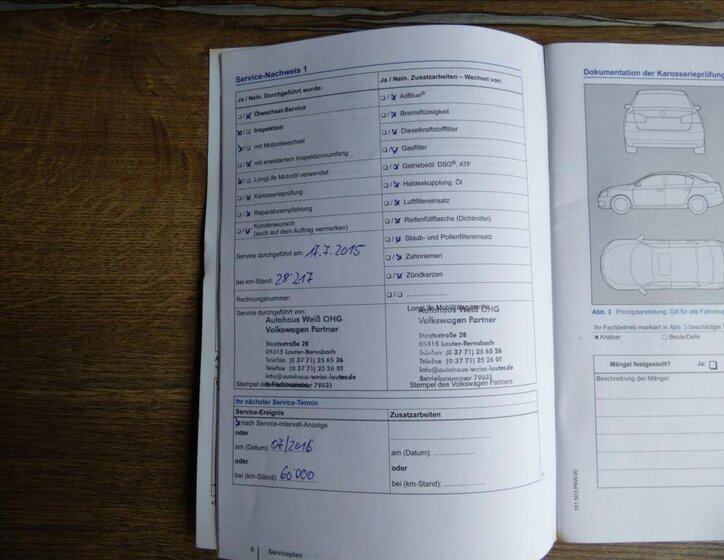 Service-Nachweis 1
Ja / Nein. Durchgeführt wurde:
Ölwechsel-Service
Inspektion
mit Motorölwechsel
mit erweitertem Inspektionsumfang
LongLife Motoröl verwendet
Karosserieprüfung
Reparaturempfehlung
Kundenwunsch
(auch auf dem Auftrag vermerken)
Service durchgeführt am: 17.7.2015
bei km-Stand: 28'217
Rechnungsnummer:
Ja / Nein. Zusatzarbeiten – Wechsel von:
AdBlue®
Bremsflüssigkeit
Dieselkraftstofffilter
Gasfilter
Getriebeöl: DSG®, ATF
Haldexkupplung: Öl
Luftfiltereinsatz
Reifenfüllflasche (Dichtmittel)
Staub- und Pollenfiltereinsatz
Zahnriemen
Zündkerzen
....................
Service durchgeführt von:
Autohaus Weiß OHG
Volkswagen Partner
Staatsstraße 28
08315 Lauter-Bernsbach
Telefon (0 37 71) 25 65 26
Telefax (0 37 71) 25 26 01
info@autohaus-weiss-lauter.de
Betriebsnummer 79031
Autohaus Weiß OHG
Volkswagen Partner
Staatsstraße 28
08315 Lauter-Bernsbach
Telefon (0 37 71) 25 65 26
Telefax (0 37 71) 25 26 01
info@autohaus-weiss-lauter.de
Betriebsnummer 79031
Stempel des Volkswagen Partners
Ihr nächster Service-Termin
Service-Ereignis
nach Service-Intervall-Anzeige
oder
am (Datum): 07/2016
oder
bei (km-Stand): 60'000
Zusatzarbeiten
am (Datum): ....................
oder
bei (km-Stand): ....................
6 Serviceplan
Dokumentation der Karosserieprüfung
Abb. 3 Prinzipdarstellung. Gilt für alle
Ihr Fachbetrieb markiert in Abb. 3 beschädigte
× Kratzer ○ Beule/Delle
Mängel festgestellt? Ja: ❑
Beschreibung der Mängel: